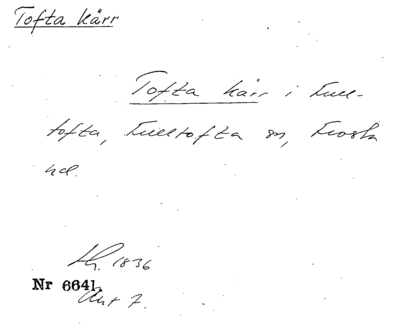 Tofta kärr
Tofta kärr i Full-
tofta, Fulltofta sn, Frosta
hd.
Lh. 1836
Nr 6641.
Akt 7.